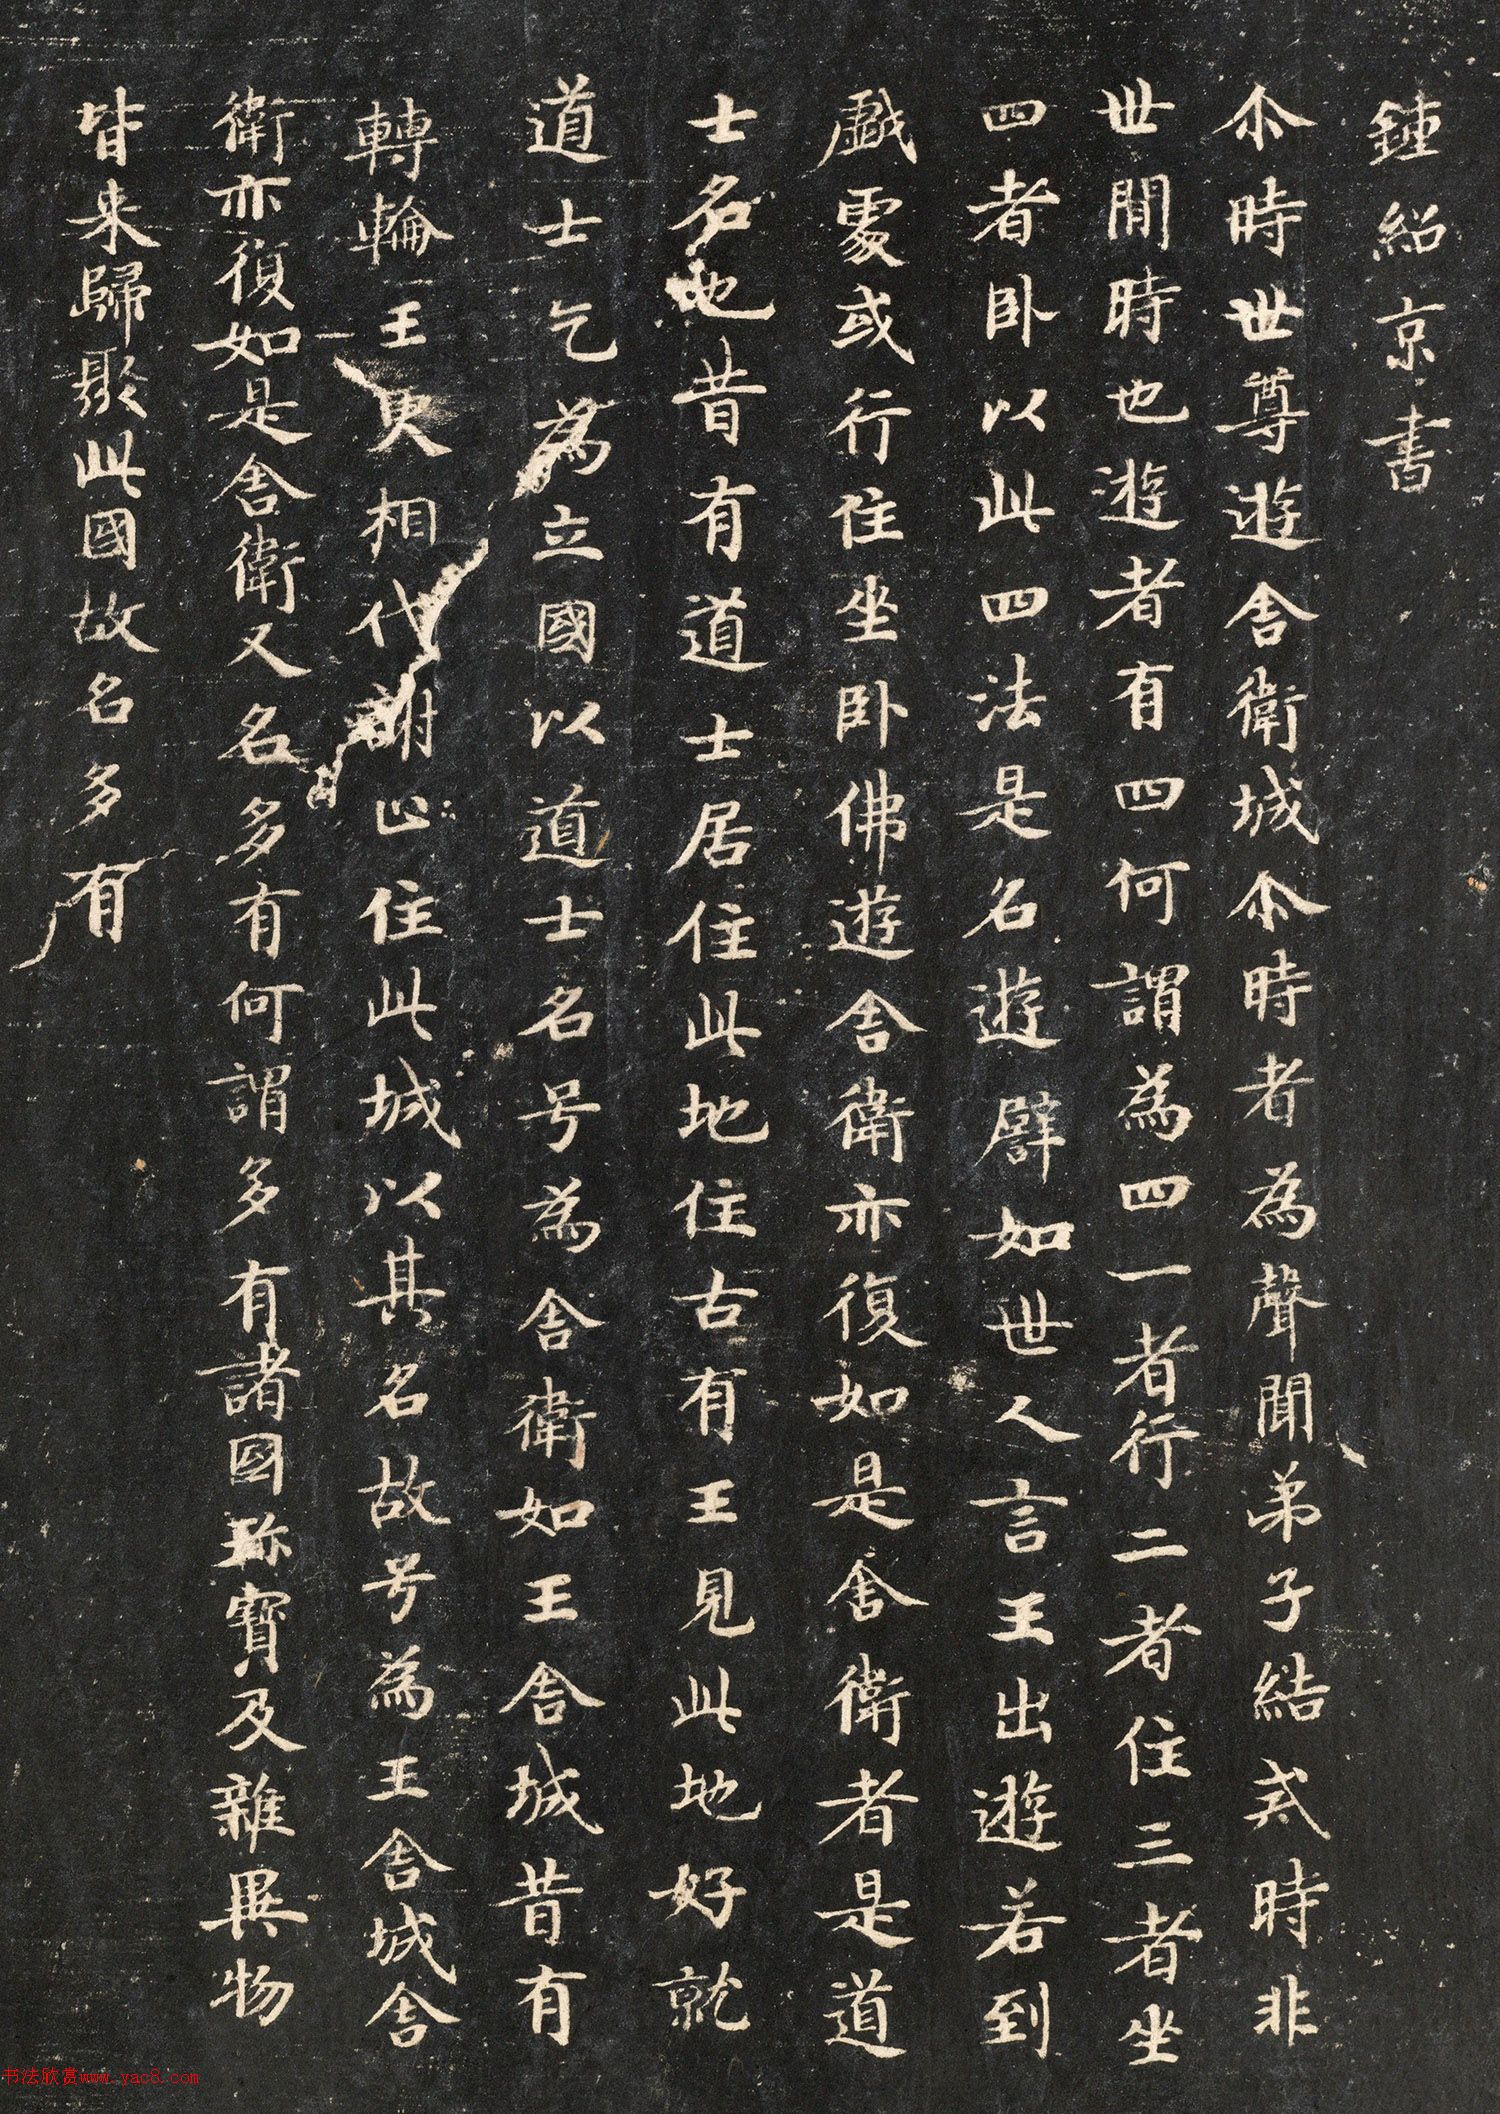 鍾紹京書
尒時世尊遊舍衛城尒時者為聲聞弟子結戒時非
世間時也遊者有四何謂為四一者行二者住三者坐
四者卧以此四法是名遊譬如世人言王出遊若到
戲處或行住坐卧佛遊舍衛亦復如是舍衛者是道
士名地昔有道士居住此地住古有王見此地好就
道士乞為立國以道士名号為舍衛如王舍城昔有
轉輪王更相代謝止住此城以其名故号為王舍城舍
衛亦復如是舍衛又名多有何謂多有諸國珎寶及雜異物
皆来歸聚此國故名多有
书法欣赏www.yac8.com